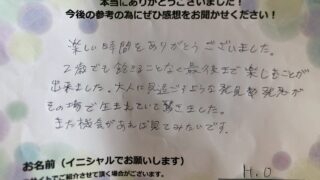 本当にありがとうございました！
今後の参考の為にぜひ感想をお聞かせください！
楽しい時間をありがとうございました。
2歳でも飽きることなく最後まで楽しむことが
出来ました。大人に見過ごすような発見発想が
その場で生まれていて驚きました。
また機会があれば見てみたいです。
お名前（イニシャルでお願いします）
H.O
サイトでご紹介させて頂く場合がございます。